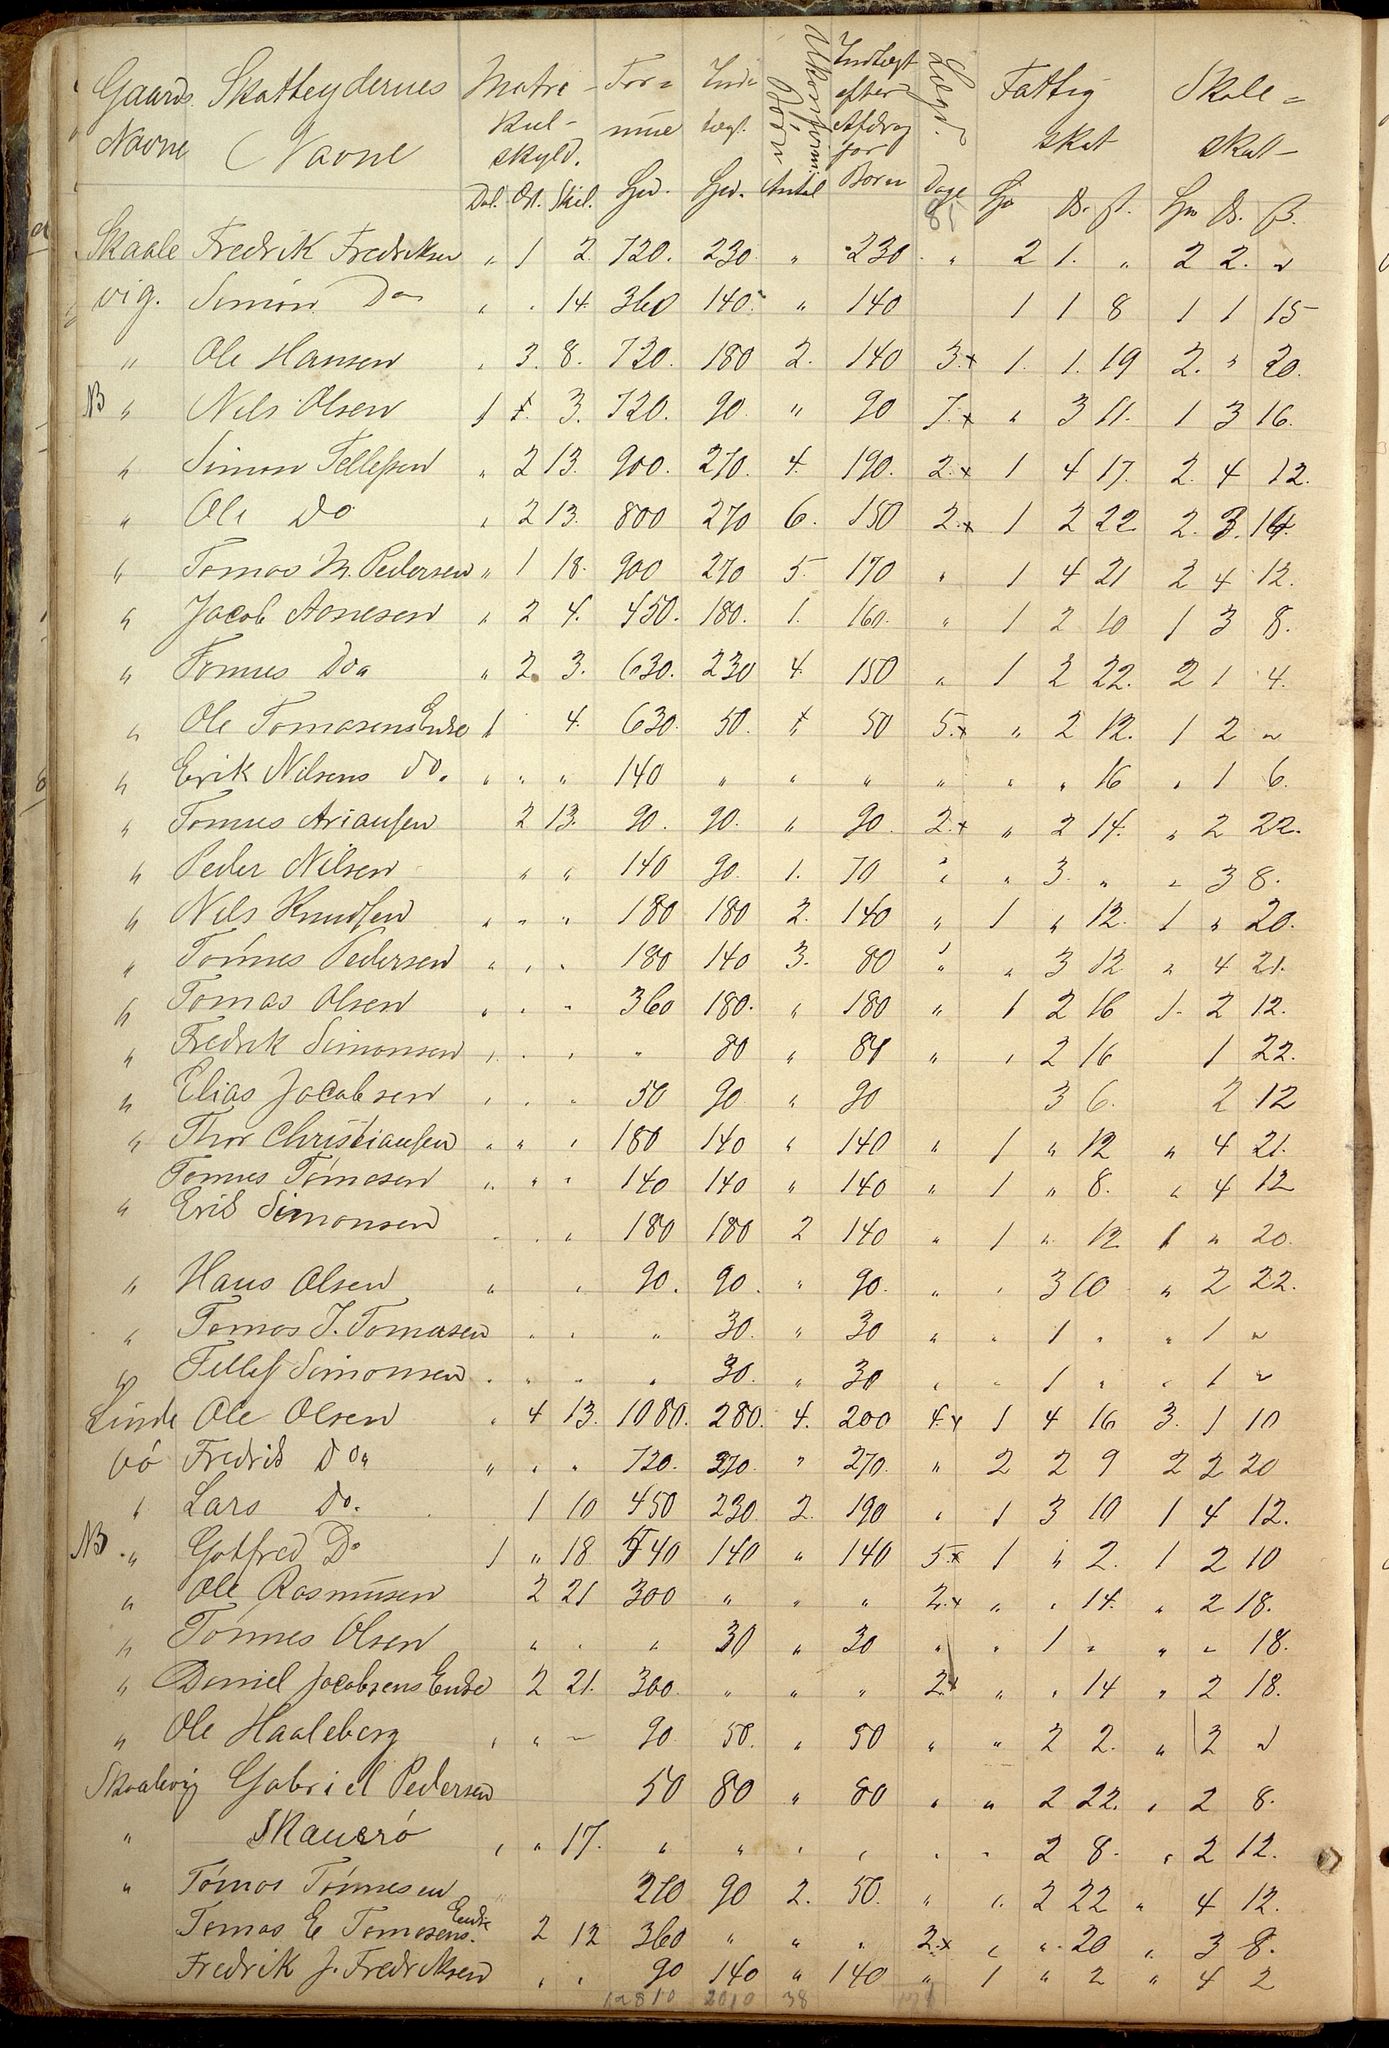 Gaards Navne | Skatteydernes Navne | Matrikulskyld. Dal. Ort. Skil. | Formue Spd. | Indtægt. Spd. | Ukonfirm. Børn Antal | Indtægt efter Afdrag for Børn | Lægd. Dage | Fattigskat Sp Ort ß. | Skoleskat Sp Ort ß.
Skaale Fredrik Fredriksen " 1 2. 720. 230. " 230. " 2 1. " 2 2. "
vig. Simon Do " " 14. 360 140. " 140 1 1 8 1 1 15
" Ole Hansen " 3. 8. 720. 180 2. 140 3.x 1. 1. 19 2. " 20.
NB " Nils Olsen 1 1. 3. 720. 90. " 90 7.x " 3 11. 1 3 16.
" Simon Tellefsen " 2 13. 900. 270. 4. 190. 2.x 1 4 17. 2. 4 12.
" Ole Do " 2 13. 800 270 6. 150 2.x 1 2 22 2. 3. 14.
" Tomas M. Pedersen " 1 18. 900 270 5. 170 " 1 4 21 2 4 12.
" Jacob Aanesen " 2 4. 450. 180. 1. 160. " 1 2 10 1 3 8.
" Tomes Do " 2 3. 630. 230 4. 150 " 1 2 22. 2 1 4.
" Ole Tomasens Enke 1 4. 630. 50. " 50 5.x " 2 12. 1 2 "
" Erik Nilsens do. " " " 140 " " " " " " 16 " 1 6.
" Tomes Ariansen 2 13. 90. 90. " 90. 2.x " 2 14. " 2 22.
" Peder Nilsen " " 140 90. 1. 70 " " 3. " " 3 8.
" Nils Knudsen " " " 180 180 2. 140 " 1 " 12. 1 " 20.
" Tønnes Pedersen " " " 180 140 3. 80 " " 3 12 " 4 21.
" Tomas Olsen " " " 360 180. " 180 " 1 2 16 1. 2 12.
" Fredrik Simonsen " " " " 80 " 80 " " 2 16 1 22.
" Elias Jacobsen " " " 50 90 " 90 3 6. 2 12
" Thor Christiansen " " " 180 140 " 140 " 1 " 12 " 4 21.
Tomes Tomesen " " " 140 140 " 140 " 1 " 8. " 4 12
" Erik Simonsen " " " 180 180 2 140 " 1 " 12 1 " 20.
" Hans Olsen " " 90. 90. " 90. " " 3 10 " 2 22.
" Tomas J. Tomasen " " " 30. " 30 " " 1 " " 1 "
" Tellef Simonsen " " " " 30. " 30 " " 1 " " 1 "
Linde Ole Olsen " 4 13. 1080. 280. 4. 200 4.x 1 4 16 3. 1 10
bø Fredrik Do " " " 720. 270. " 270. " 2 2 9 2 2 20
" Lars Do. 1 10 450 230. 2. 190 " 1 3 10 1 4 12.
NB " Gotfred Do 1 " 18. 540 140 " 140 5x 1 " 2. 1 2 10
" Ole Rasmusen 2 21 300 " " " 2.x " " 14. " 2 18.
" Tønnes Olsen " " " 30 " 30 " " 1 " " " 18.
" Daniel Jacobsens Enke 2 21. 300. " " " 2x " " 14 " 2 18.
" Ole Haaleberg " " " 90. 50. " 50 " " 2 2. " 2 "
Skaalevig Gabriel Pedersen 50 80 " 80 " " 2 22. " 2 8.
" Skauerø " " 17. " " " " " " 2 8. " 2 12.
" Tomas Tønnesen 270 90 2. 50. " " 2 22 " 4 12.
Tomas E Tomasens Enke 2 12 360 " " " 2.x " " 20 " 3 8.
Fredrik J. Fredriksen " " 90 140 " 140 " 1 " 2 " 4 2
12810 38